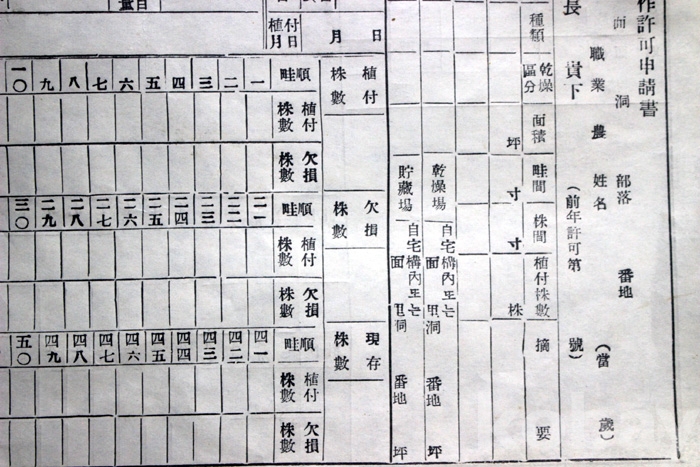 作許可申請書
面 洞 部落 番地
職業 農 姓名 (當 歲)
長 貴下 (前年許可第 號)
種類 乾燥區分 面積 畦間 株間 植付株數 摘要
坪 寸 寸 株
乾燥場 自宅構內또는 面 里洞 番地 坪
貯藏場 自宅構內또는 面 里洞 番地 坪
植付月日 月 日
植付株數
欠損株數
現存株數
畦順 一 二 三 四 五 六 七 八 九 一〇
植付株數
欠損株數
畦順 二一 二二 二三 二四 二五 二六 二七 二八 二九 三〇
植付株數
欠損株數
畦順 四一 四二 四三 四四 四五 四六 四七 四八 四九 五〇
植付株數
欠損株數